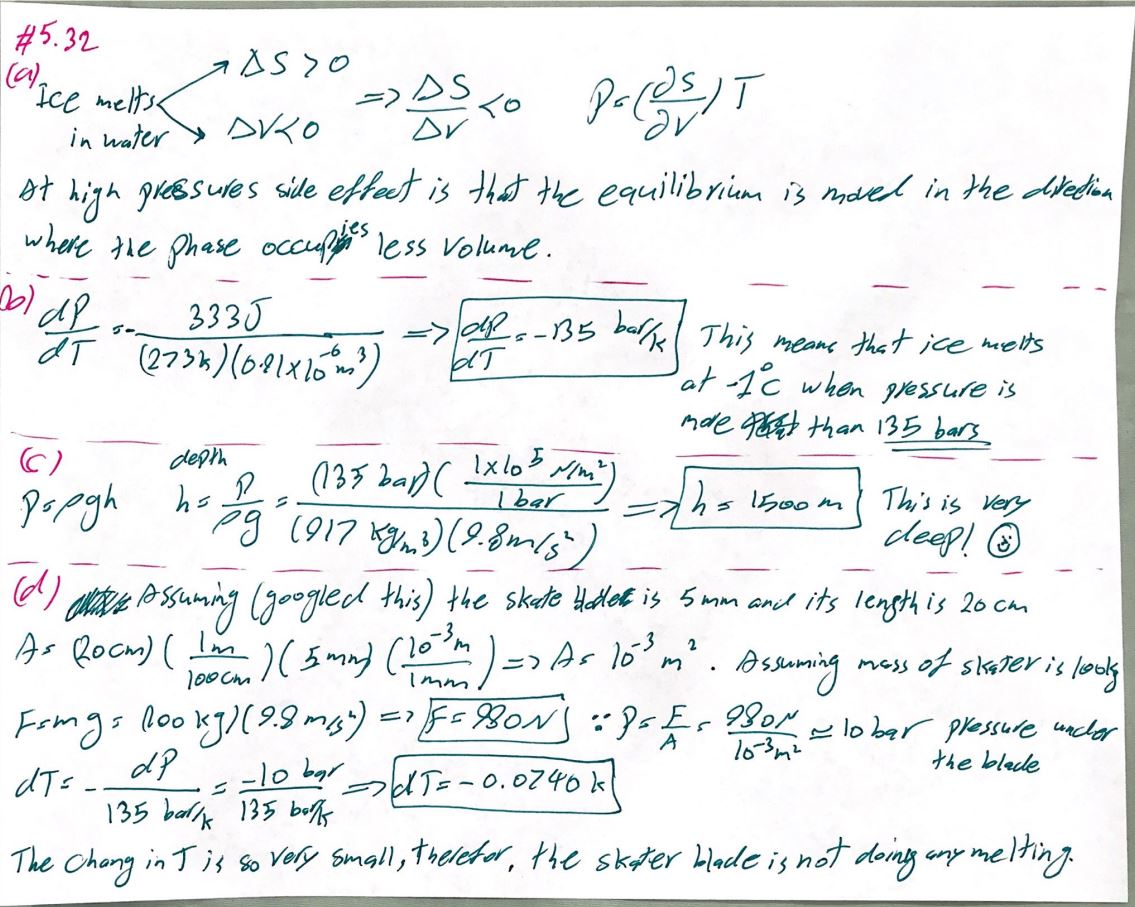 #5.32
(a)
Ice melts in water ΔS>0 ΔV<0 => ΔS/ΔV <0 P=(∂S/∂V)T
At high pressures side effect is that the equilibrium is moved in the direction
where the phase occupies less volume.
(b) dP/dT = - 333J/((273k)(0.91x10^-6 m^3)) => dP/dT = -135 bar/k This means that ice melts
at -1°C when pressure is
more than 135 bars
(c) depth
P=ρgh h= P/ρg = (135 bar)(1x10^5 N/m^2/1 bar)/((917 kg/m^3)(9.8m/s^2)) => h= 1500 m This is very
deep! ☺
(d) Assuming (googled this) the skate is 5mm and its length is 20 cm
A= (20cm)(1m/100cm)(5mm)(10^-3 m/1mm) => A= 10^-3 m^2. Assuming mass of skater is 100kg
F=mg= (100 kg)(9.8 m/s^2) => F= 980N ∵ P= F/A = 980N/10^-3 m^2 ≃ 10 bar pressure under
the blade
dT= - dP/(135 bar/k) = -10 bar/(135 bar/k) => dT= -0.0740 k
The chang in T is so very small, therefor, the skater blade is not doing any melting.